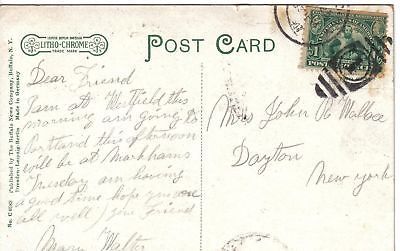 LITHO-CHROME
TRADE MARK
POST CARD
No. C 6092 Published by The Buffalo News Company, Buffalo, N. Y.
Dresden-Leipzig-Berlin Made in Germany
Dear Friend
I am at Westfield this
morning am going to
Portland this afternoon
will be at Markhams
Tuesday am having
a good time hope you are
all well / your Friend
Walter
Mrs John R Wallace
Dayton
New York